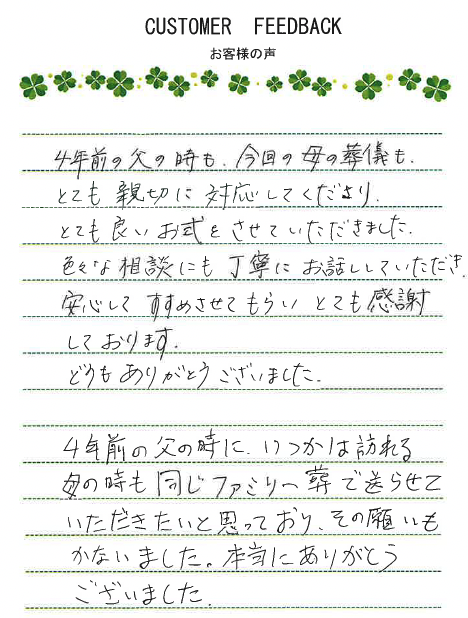 CUSTOMER FEEDBACK
お客様の声
4年前の父の時も、今回の母の葬儀も、
とても親切に対応してくださり、
とても良いお式をさせていただきました。
色々な相談にも丁寧にお話ししていただき、
安心してすすめさせてもらいとても感謝
しております。
どうもありがとうございました。
4年前の父の時に、いつかは訪れる
母の時も同じファミリー葬で送らせて
いただきたいと思っており、その願いも
かないました。本当にありがとう
ございました。